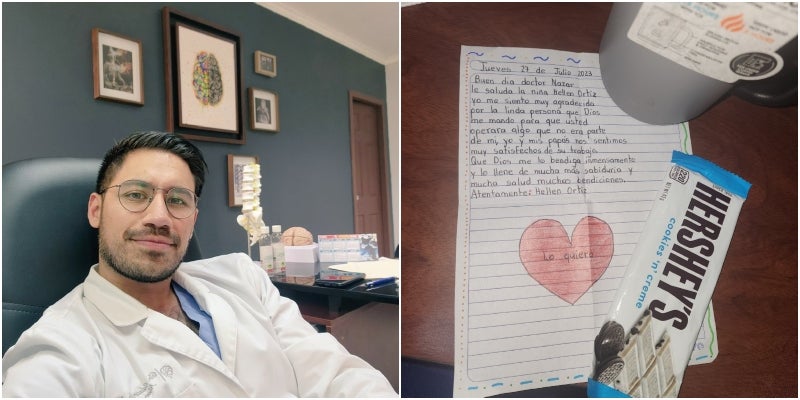 Jueves 27 de Julio 2023
Buen dia doctor Nazar
le saluda la niña Hellen Ortiz
yo me siento muy agradecida
por la linda persona que Dios
me mando para que usted
operara algo que no era parte
de mi, yo y mis papas nos sentimos
muy satisfechos de su trabajo
Que Dios me lo bendiga inmensamente
y lo llene de mucha mas sabiduria y
mucha salud muchas bendiciones.
Atentamente: Hellen Ortiz
Lo quiero
HERSHEY'S
cookies 'n' creme